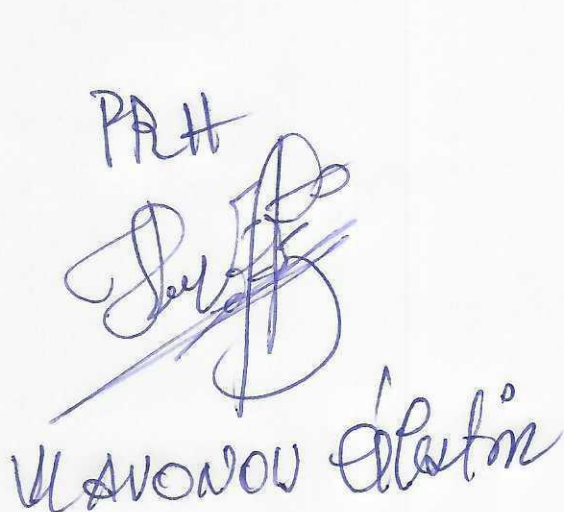 PRH
VLAVONOU Célestin